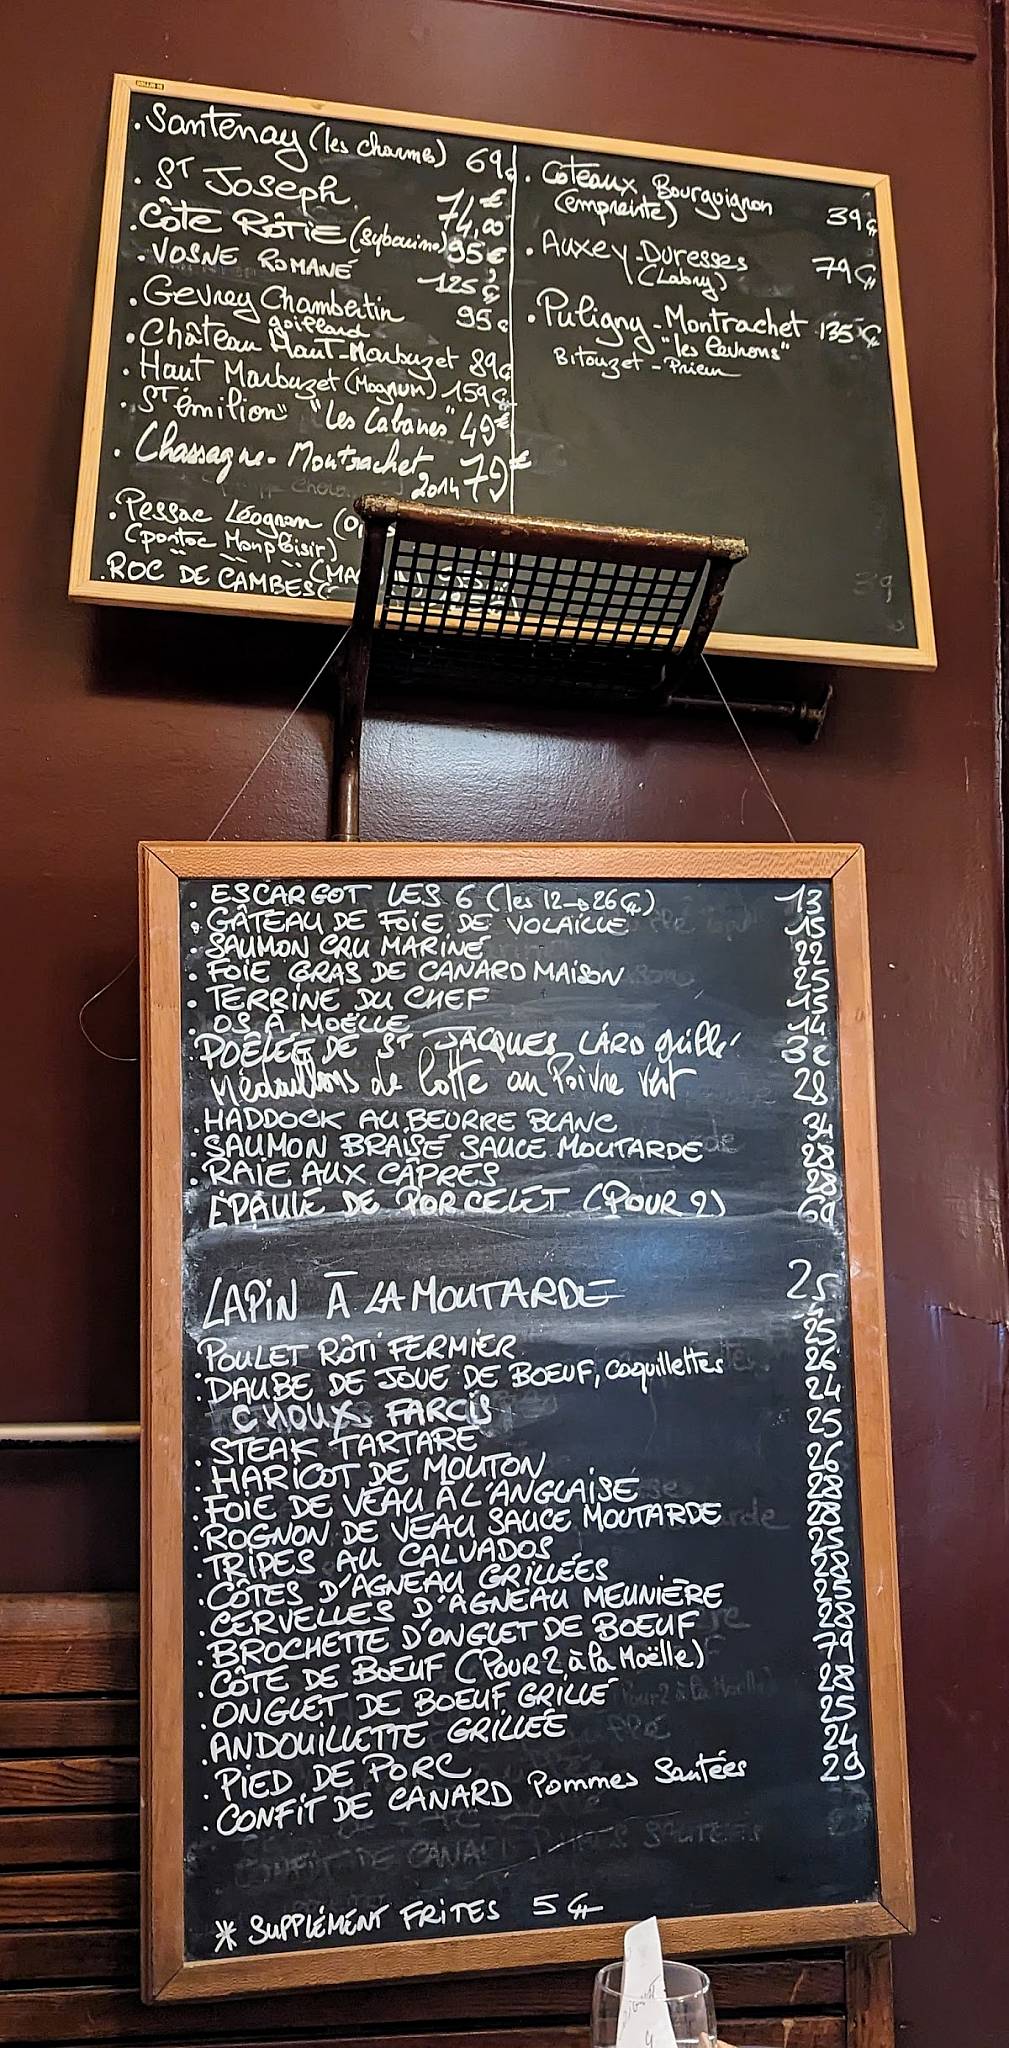 . Santenay (les charmes) 69€
. ST JOSEPH 74,00€
. CÔTE RÔTIE 95€
. VOSNE ROMANÉ 125€
. Gevrey Chambertin 95€
. Château Haut-Marbuzet 89€
. Haut Marbuzet (Magnum) 159€
. ST émilion "Les Cabanes" 49€
. Chassagne-Montrachet 2014 79€
. Pessac Léognan
. ROC DE CAMBES
. Côteaux Bourguignon 39€
(empreinte)
. Auxey-Duresses 79€
(Labry)
. Puligny-Montrachet 135€
Bitouzet-Prieur
. ESCARGOT LES 6 (les 12→26€) 13
. GÂTEAU DE FOIE DE VOLAILLE 15
. SAUMON CRU MARINÉ 22
. FOIE GRAS DE CANARD MAISON 25
. TERRINE DU CHEF 15
. OS À MOËLLE 14
. POÊLÉE DE ST JACQUES LARD grillé
Médaillons de lotte au Poivre Vert 28
. HADDOCK AU BEURRE BLANC 34
. SAUMON BRAISÉ SAUCE MOUTARDE 28
. RAIE AUX CÂPRES 28
. ÉPAULE DE PORCELET (POUR 2)
LAPIN À LA MOUTARDE 25
. POULET RÔTI FERMIER 25
. DAUBE DE JOUE DE BOEUF, coquillettes 26
CHOUX FARCIS 24
. STEAK TARTARE 25
. HARICOT DE MOUTON 26
. FOIE DE VEAU À L'ANGLAISE 28
. ROGNON DE VEAU SAUCE MOUTARDE 28
. TRIPES AU CALVADOS 25
. CÔTES D'AGNEAU GRILLÉES 28
. CERVELLES D'AGNEAU MEUNIÈRE 25
. BROCHETTE D'ONGLET DE BOEUF 28
. CÔTE DE BOEUF (POUR 2, à la Moëlle) 79
. ONGLET DE BOEUF GRILLÉ 28
. ANDOUILLETTE GRILLÉE 25
. PIED DE PORC 24
. CONFIT DE CANARD Pommes Sautées 29
* SUPPLÉMENT FRITES 5€